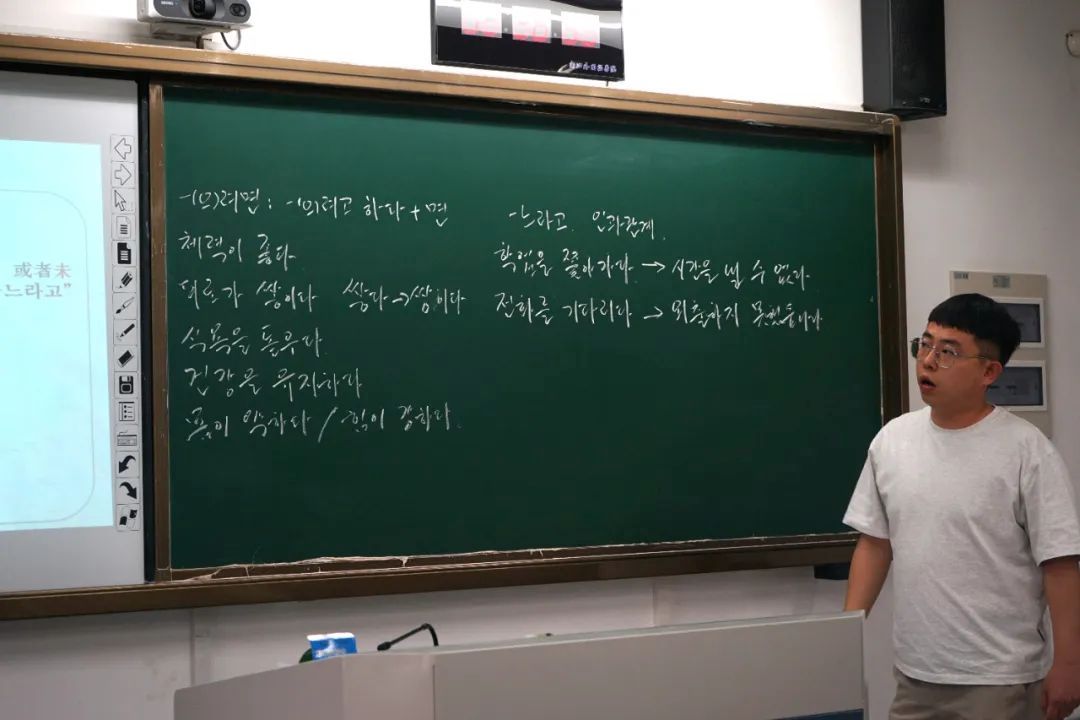 或者未
느라고”
-(으)려면 : -(으)려고 하다 + 면
체력이 좋다.
피로가 쌓이다 쌓다→쌓이다
식욕을 돋우다.
건강을 유지하다
몸이 약하다 / 힘이 강하다.
-느라고. 인과관계.
학업을 쫓아가다. → 시간을 낼 수 없다
전화를 기다리다 → 외출하지 못했습니다